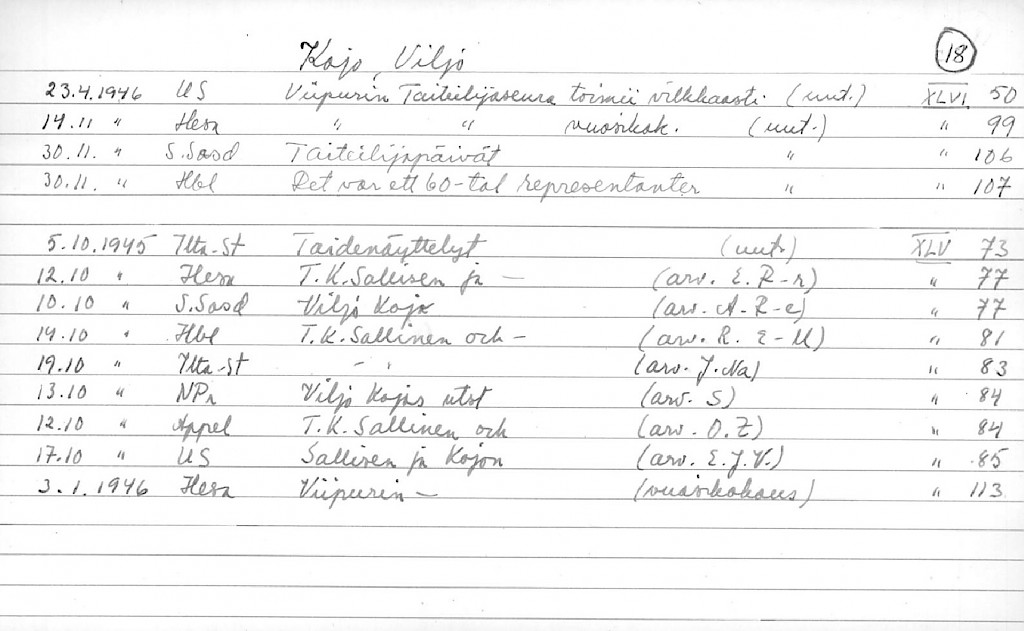 Kojo, Viljo 18
23.4.1946 US Viipurin Taiteilijaseura toimii vilkkaasti (uut.) XLVI 50
14.11 " Hesa " " vuosikok. (uut.) " 99
30.11. " S.Sosd Taiteilijapäivät " " 106
30.11. " Hbl Det var ett 60-tal representanter " " 107
5.10.1945 Ilta-St Taidenäyttelyt (uut.) XLV 73
12.10 " Hesa T.K.Sallisen ja — (arv. E. R-r) " 77
10.10 " S.Sosd Viljo Kojo (arv. A-R-e) " 77
14.10 " Hbl T.K.Sallinen och — (arv. R. E-M) " 81
19.10 " Ilta-St - " (arv. J.Na) " 83
13.10 " NPr Viljo Kojos utst (arv. S) " 84
12.10 " Appel T.K.Sallinen och (arv. O.Z) " 84
17.10 " US Sallisen ja Kojon (arv. E.J.V.) " 85
3.1.1946 Hesa Viipurin — (vuosikokous) " 113